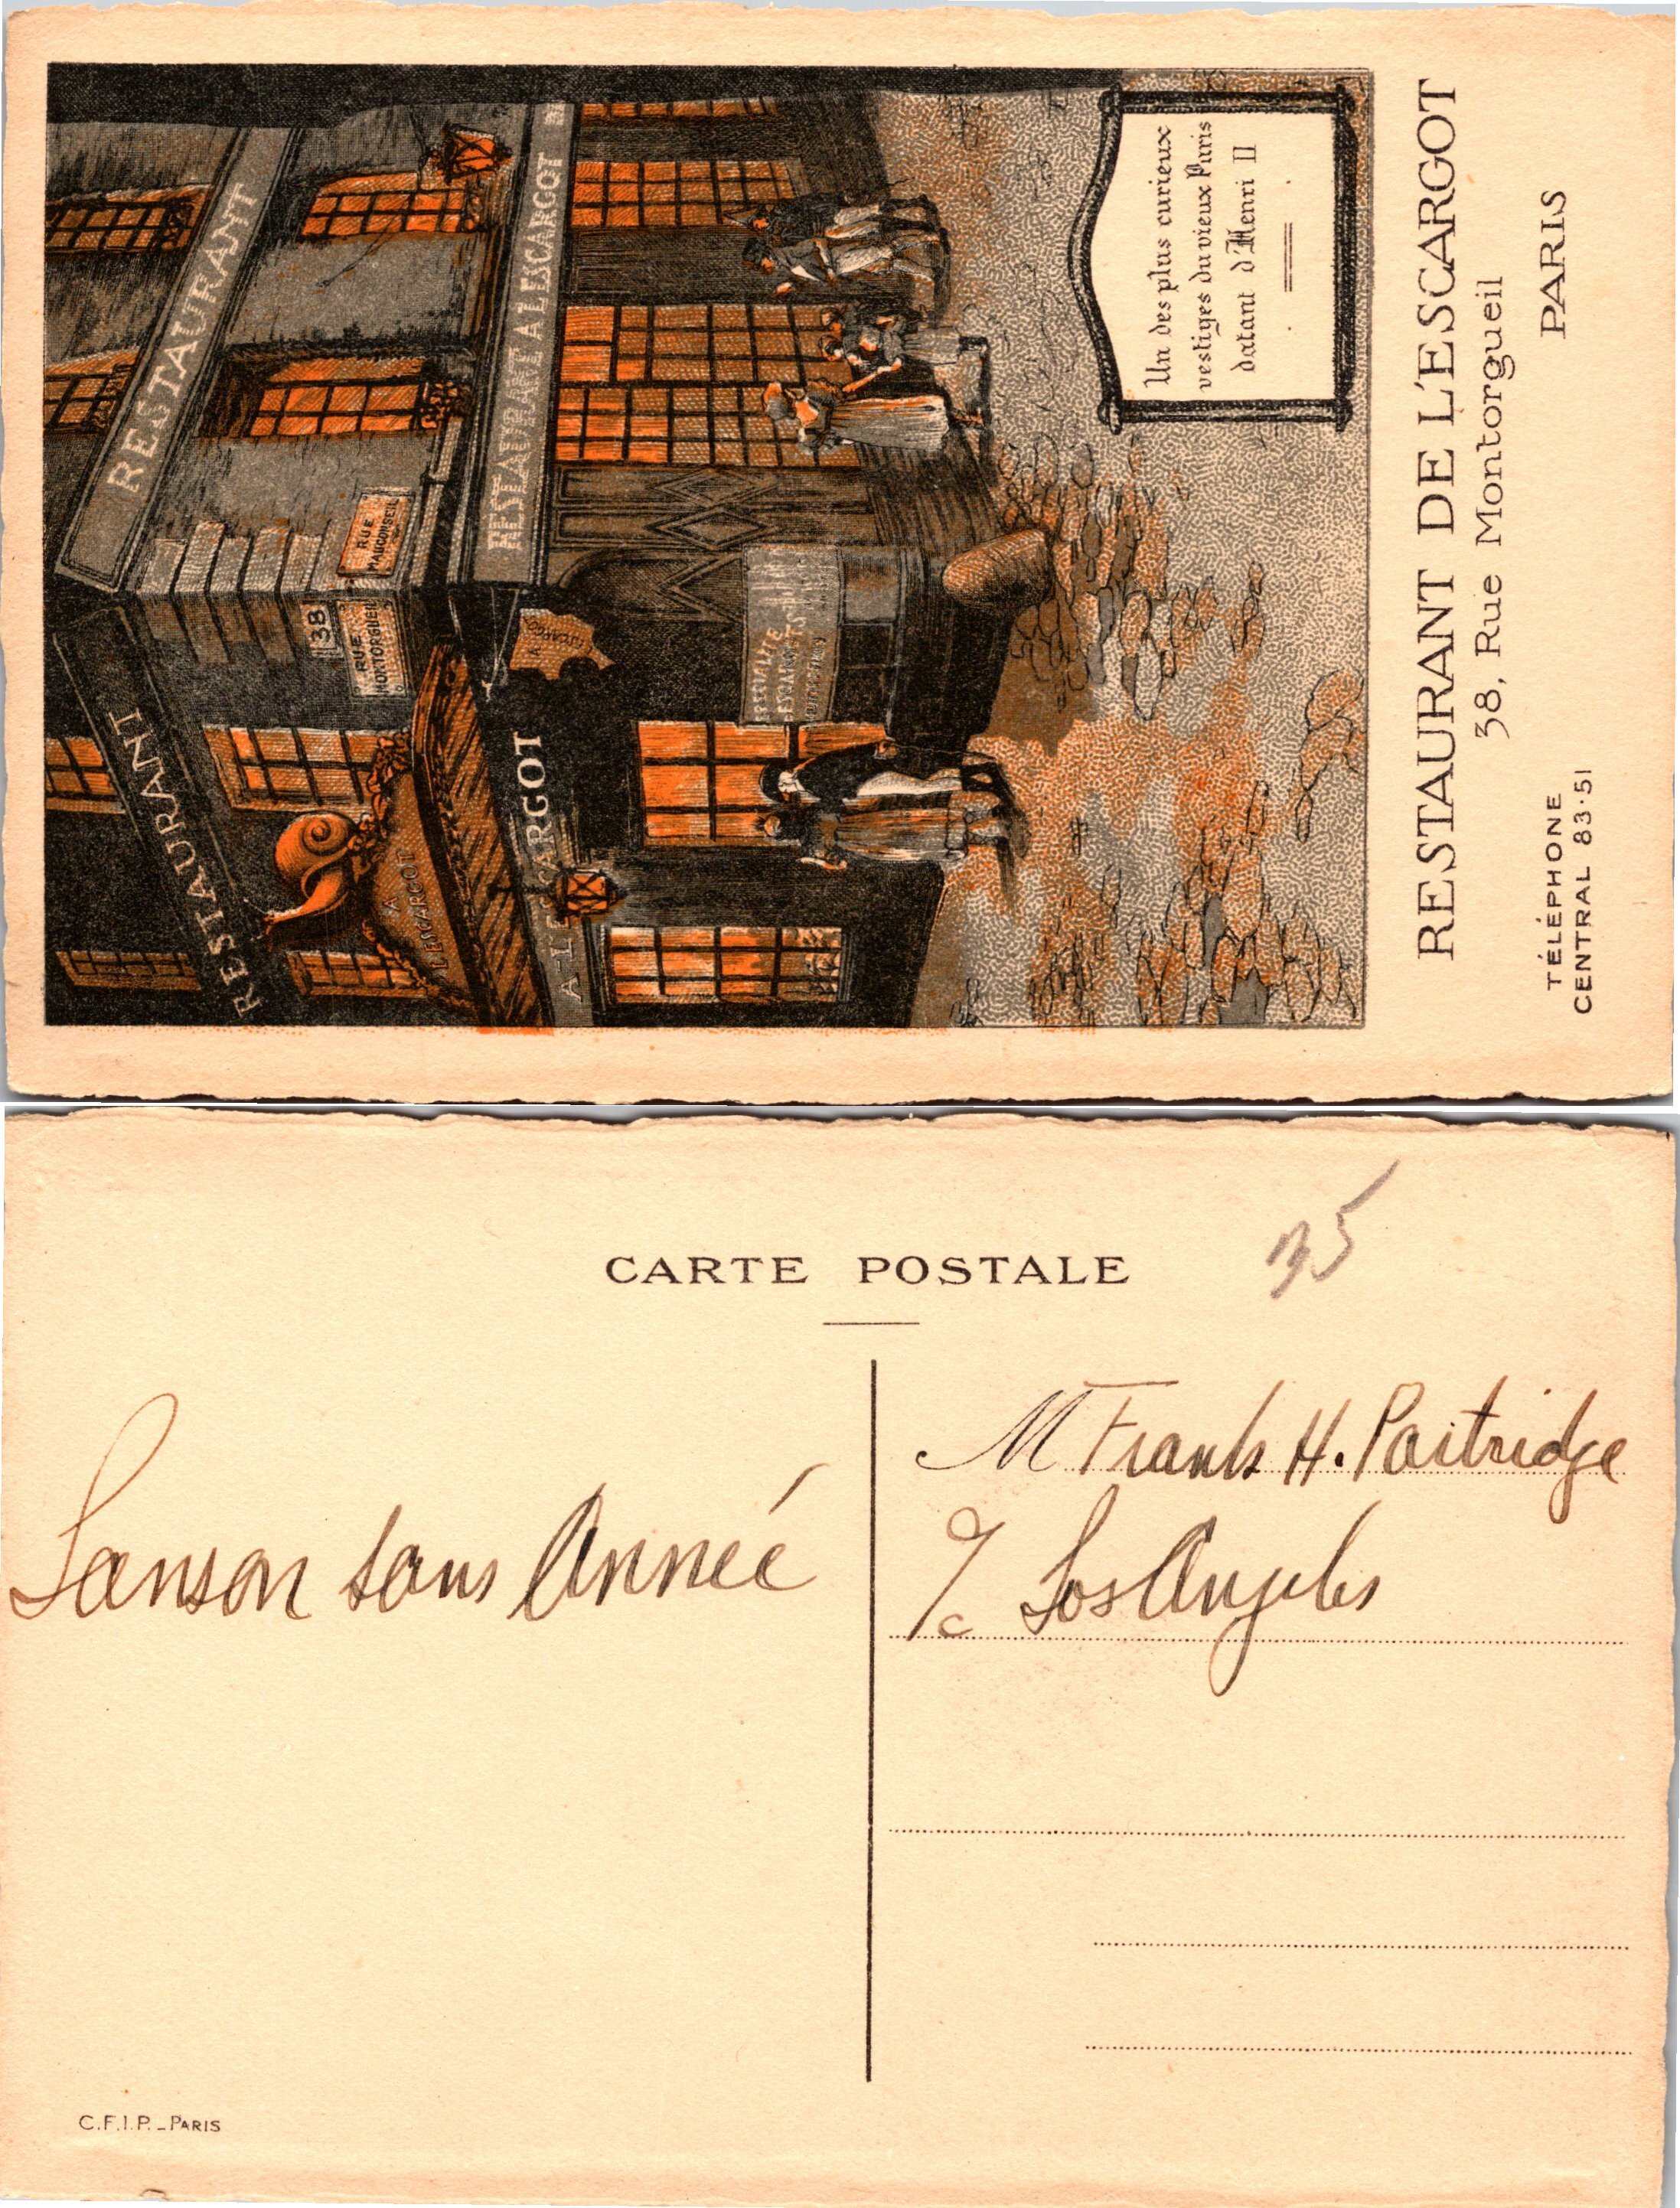 RESTAURANT
RESTAURANT
38
RUE
MONTORGUEIL
RUE
MAUCONSEIL
A
L'ESCARGOT
A L'ESCARGOT
RESTAURANT A L'ESCARGOT 38
A
L'ESCARGOT
SPECIALITE
D'ESCARGOTS
Un des plus curieux
vestiges du vieux Paris
datant d'Henri II
RESTAURANT DE L'ESCARGOT
38, Rue Montorgueil
TÉLÉPHONE
CENTRAL 83·51
PARIS
CARTE POSTALE
35
Sanson sans Anneé
M Frank H. Partridge
c/o Los Angeles
C.F.I.P. _ PARIS